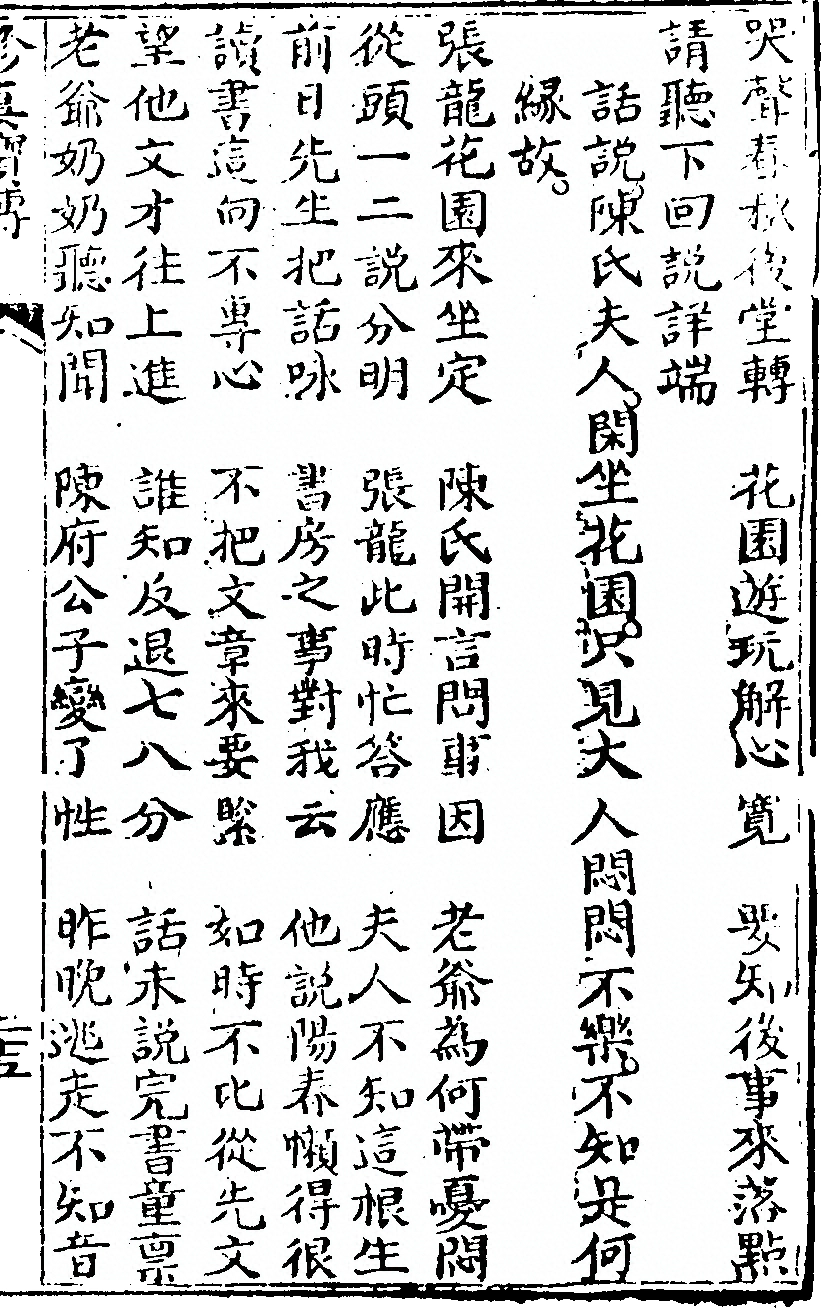 哭聲春秋後堂轉　花園遊玩解心寬　要知後事來落點
請聽下回説詳端
話説陳氏夫人。閑坐花園。只見大人悶悶不樂。不知是何
緣故。
張龍花園來坐定　陳氏開言問事因　老爺為何帶憂悶
從頭一二説分明　張龍此時忙答應　夫人不知這根生
前日先生把話咏　書房之事對我云　他説陽春懶得很
讀書這向不專心　不把文章來要緊　如時不比從先文
望他文才往上進　誰知反退七八分　話未説完書童稟
老爺奶奶聽知聞　陳府公子變了性　昨晚逃走不知音